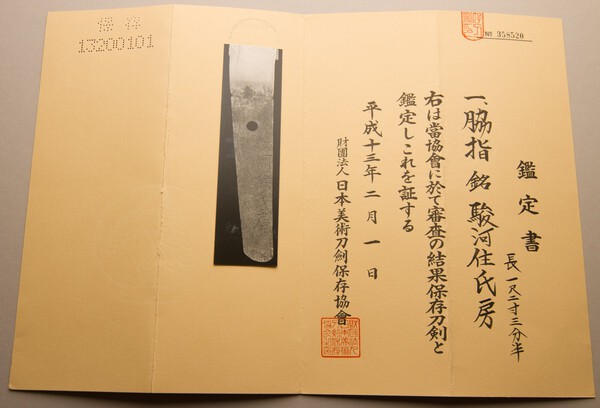 保存
13200101
№ 358520
鑑定書
一、脇指 銘 駿河住氏房
長一尺二寸三分半
右は當協會に於て審査の結果保存刀剣と
鑑定しこれを証する
平成十三年二月一日
財團法人日本美術刀劍保存協會